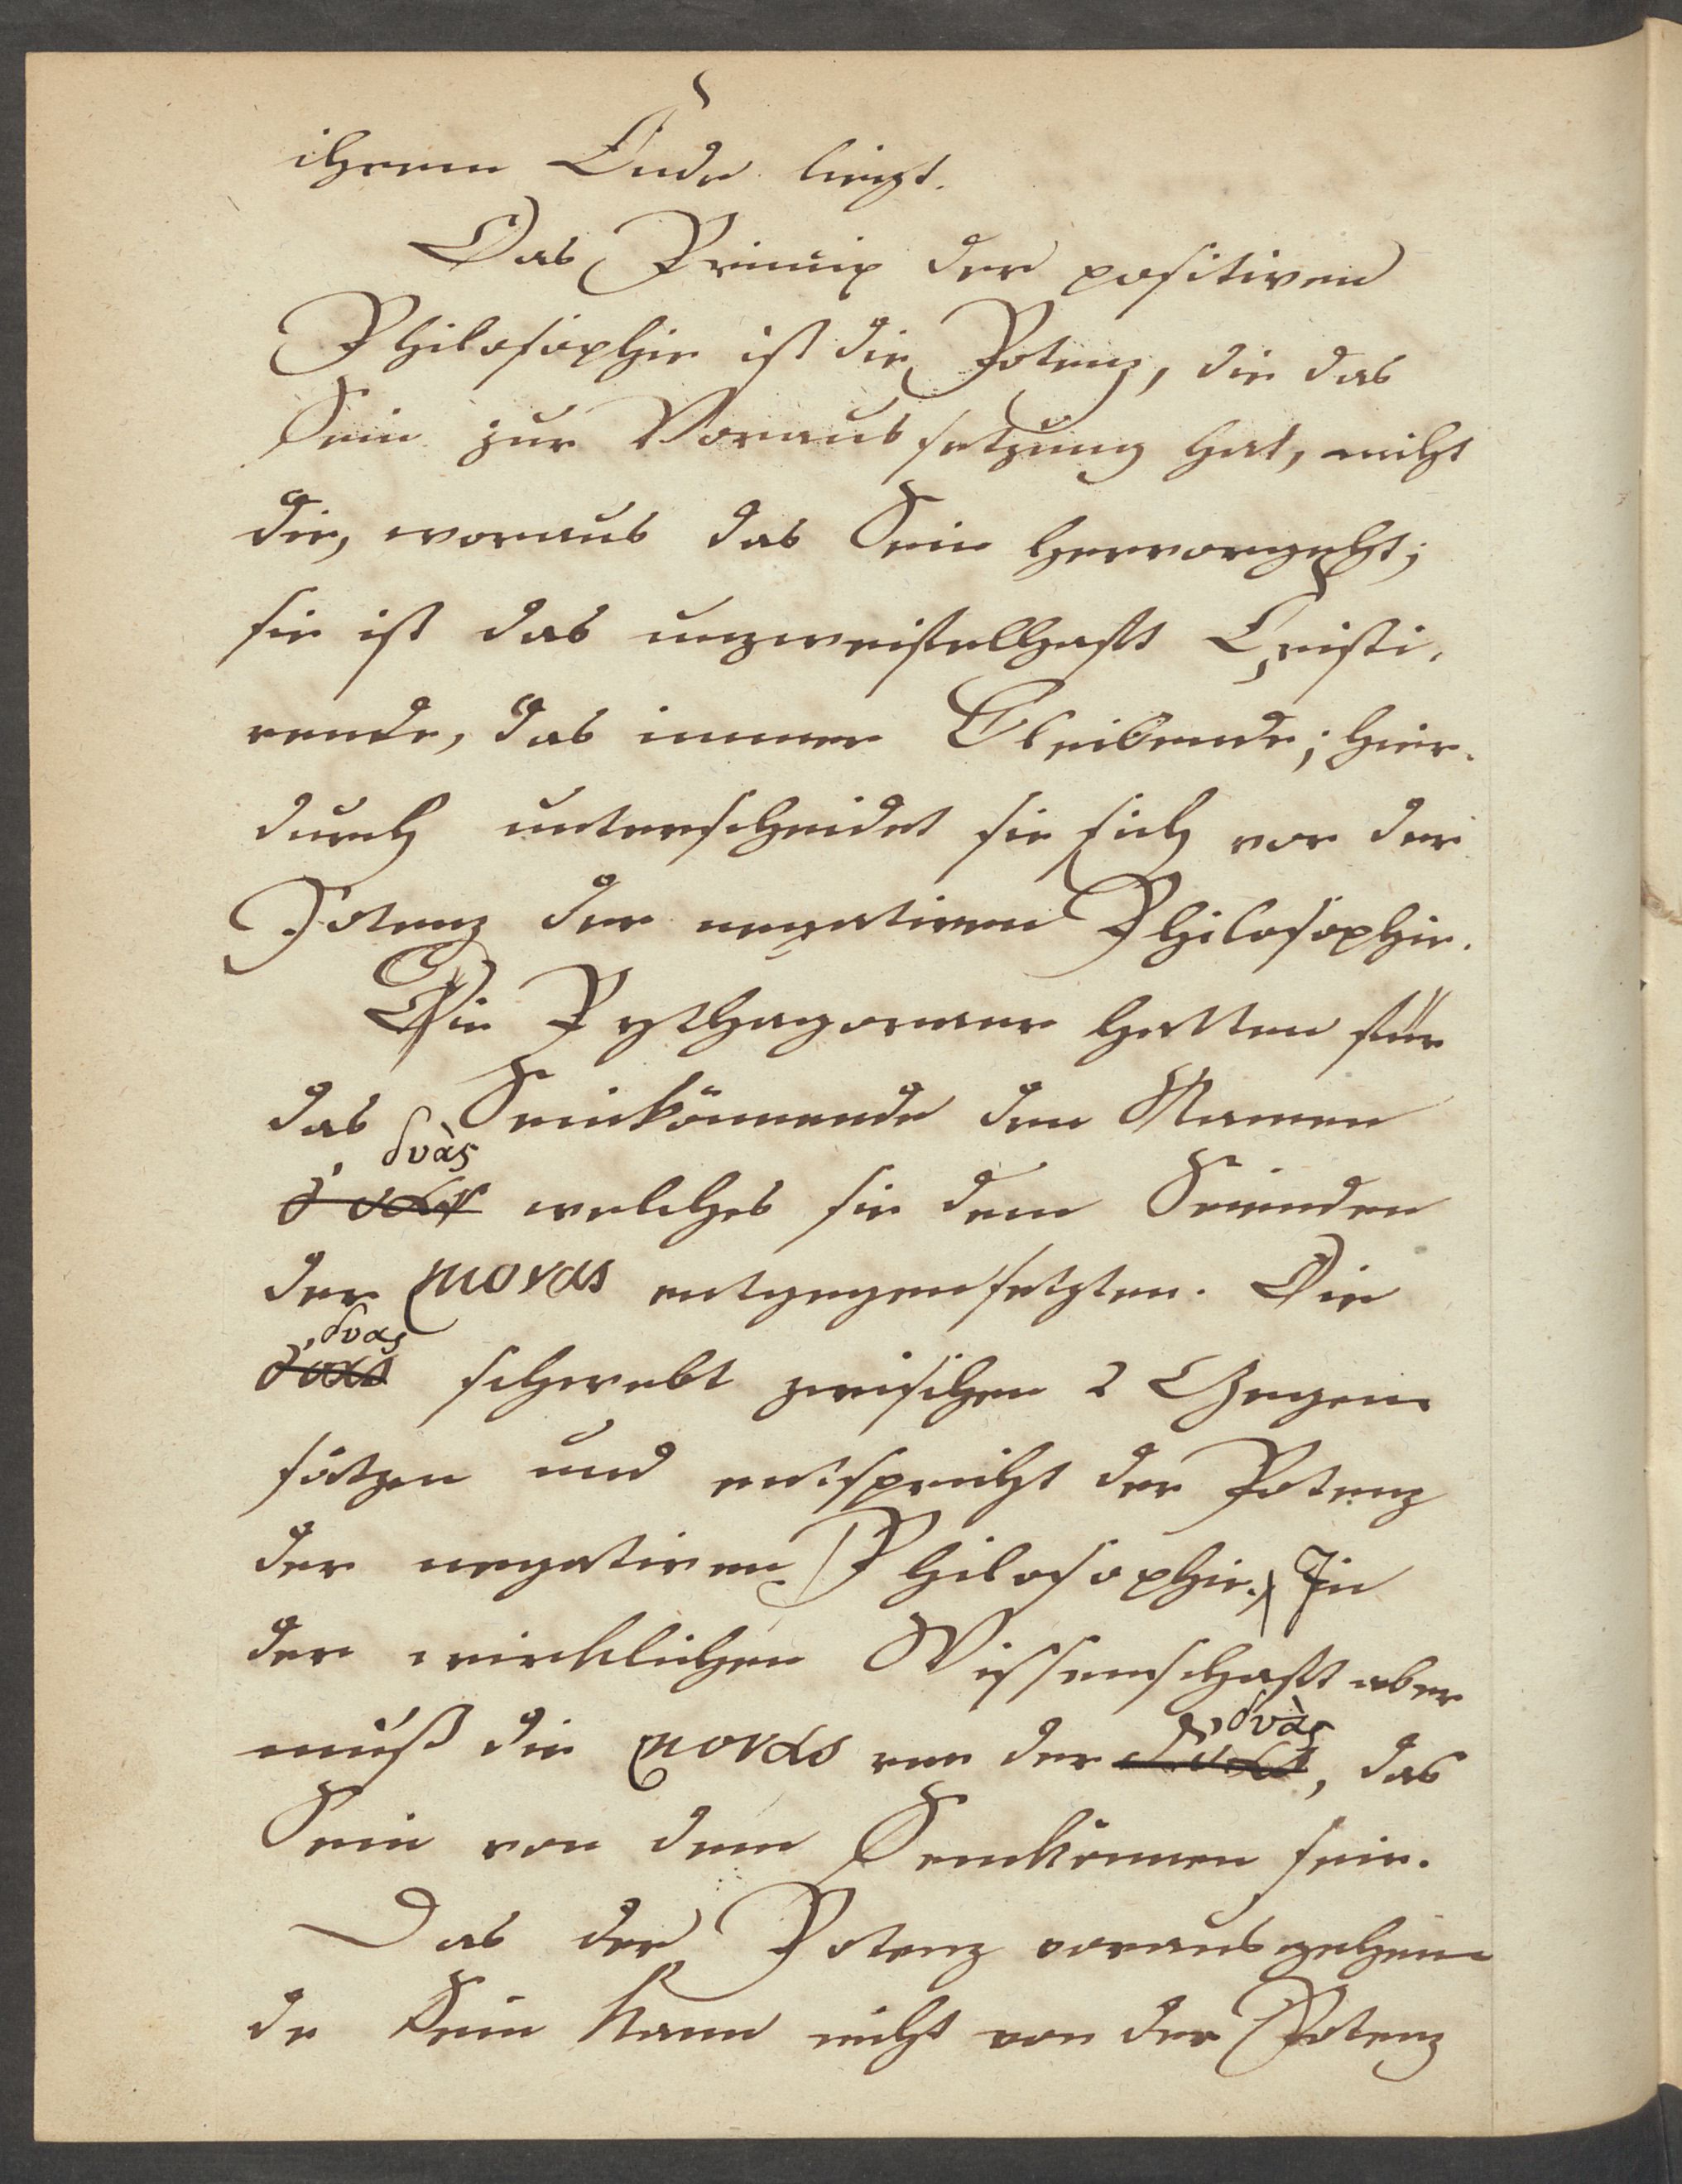 ihrem Ende liegt.
Das Princip der positiven
Philosophie ist die Potenz, die das
Sein zur Voraussetzung hat, nicht
die, woraus das Sein hervorgeht;
sie ist das unzweifelhaft Existi-
rende, das immer Bleibende; hier-
durch unterscheidet sie sich vor der
Potenz der negativen Philosophie.
Die Pythagoraeer hatten für
das Seinkönnende den Namen
δυὰς
welches sie dem Seienden
der μονας entgegensetzten. Die
δυας
schwebt zwischen 2 Gegen-
sätzen und entspricht der Potenz
der negativen Philosophie. In
der wirklichen Wissenschaft aber
muß die μονας vor der δυὰς, das
Sein von dem Seinkönnen sein.
Das der Potenz vorausgehen-
de Sein kann nicht von der Potenz